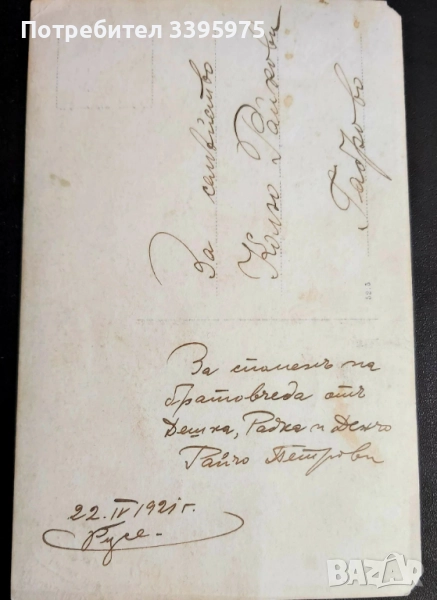 Потребител 3395975
За семейство
Кольо Райкови
Габрово
За споменъ на
братовчеда отъ
Дешка, Радка и Денчо
Райчо Петрови
22.IV 1921 г.
Русе.
BAZAR